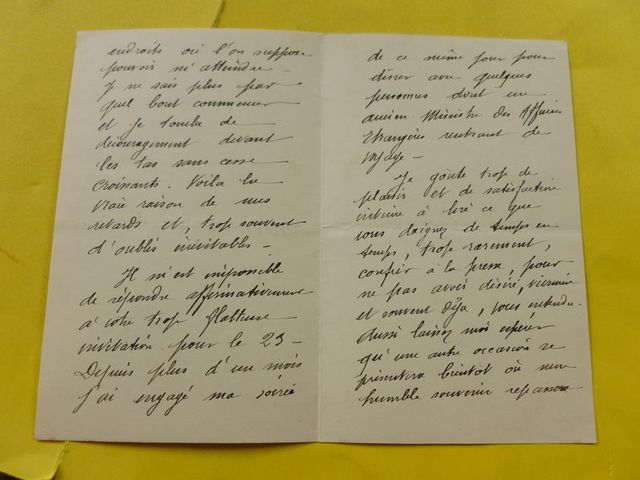 endroits où l'on suppose
pouvoir m'atteindre –
Je ne sais plus par
quel bout commencer
et je tombe de
découragement devant
les tas sans cesse
croissants. Voilà la
vraie raison de mes
retards et, trop souvent
d'oublis inévitables –
Il m'est impossible
de répondre affirmativement
à votre trop flatteuse
invitation pour le 23 –
Depuis plus d'un mois
j'ai engagé ma soirée
de ce même jour pour
dîner avec quelques
personnes dont un
ancien Ministre des Affaires
Etrangères rentrant de
voyage –
Je goûte trop de
plaisir et de satisfaction
intime à lire ce que
vous daignez de temps en
temps, trop rarement,
confier à la presse, pour
ne pas avoir désiré,
et souvent déja, vous entendre.
Aussi laissez moi espérer
qu'une autre occasion se
présentera bientôt où mon
humble souvenir